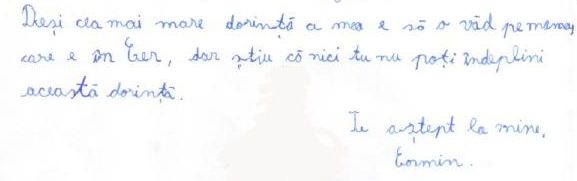 Deși cea mai mare dorință a mea e să o văd pe mama,
care e în Cer, dar știu că nici tu nu poți îndeplini
această dorință.
Te aștept la mine,
Cosmin.